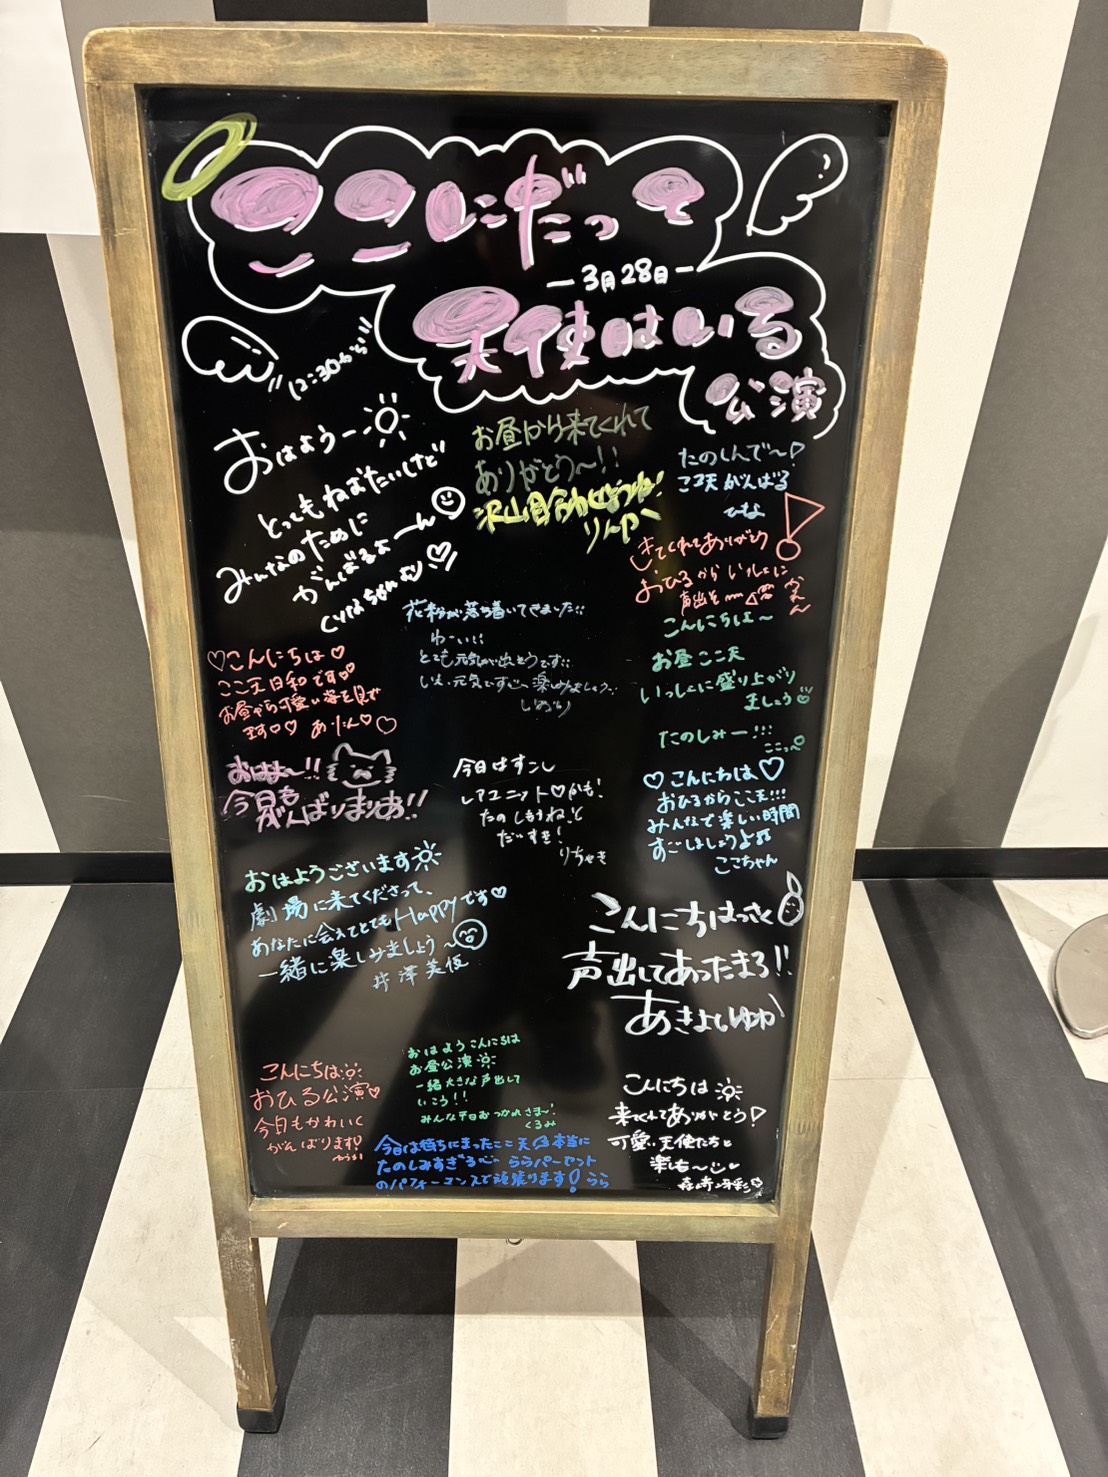 ここにだって
ー3月28日ー
天使はいる
公演
12:30から
おはようー
とってもねむたいけど
みんなのために
がんばるよーーん
お昼から来てくれて
ありがとう〜!!
沢山目合わせようね!
りんか
たのしんで〜!
ここ天がんばる
ひな
きてくれてありがとう
おひるからいっしょに
声出そ
花粉が落ち着いてきました!!
わーい!!
とても元気が出そうです!!
こんにちは〜
お昼ここ天
いっしょに盛り上がり
ましょう
たのしみー!!!
♡こんにちは♡
ここ天日和です
お昼から可愛い姿を見せ
ます♡♡ ありん♡♡
おはよ〜!!
今日も
がんばりまりお!!
今日はすこし
レアユニット♡かも!
たのしもうね!と
だいすき!
りちゃき
♡こんにちは♡
おひるからここ天!!!
みんなで楽しい時間
すごしましょうよ♫
ここちゃん
おはようございます
劇場に来てくださって、
あなたに会えてとてもHappyです♡
一緒に楽しみましょう〜
井澤美優
こんにちはっさく
声出してあったまろ!!
あきよしゆか
こんにちは
おひる公演♡
今日もかわいく
がんばります!
おはようこんにちは
お昼公演
一緒大きな声出して
いこう!!
みんな平日おつかれさま〜!
くるみ
今日は待ちにまったここ天 本当に
たのしみすぎる ららパーセント
のパフォーマンスで頑張ります! らら
こんにちは
来てくれてありがとう!
可愛い天使たちと
楽しも〜